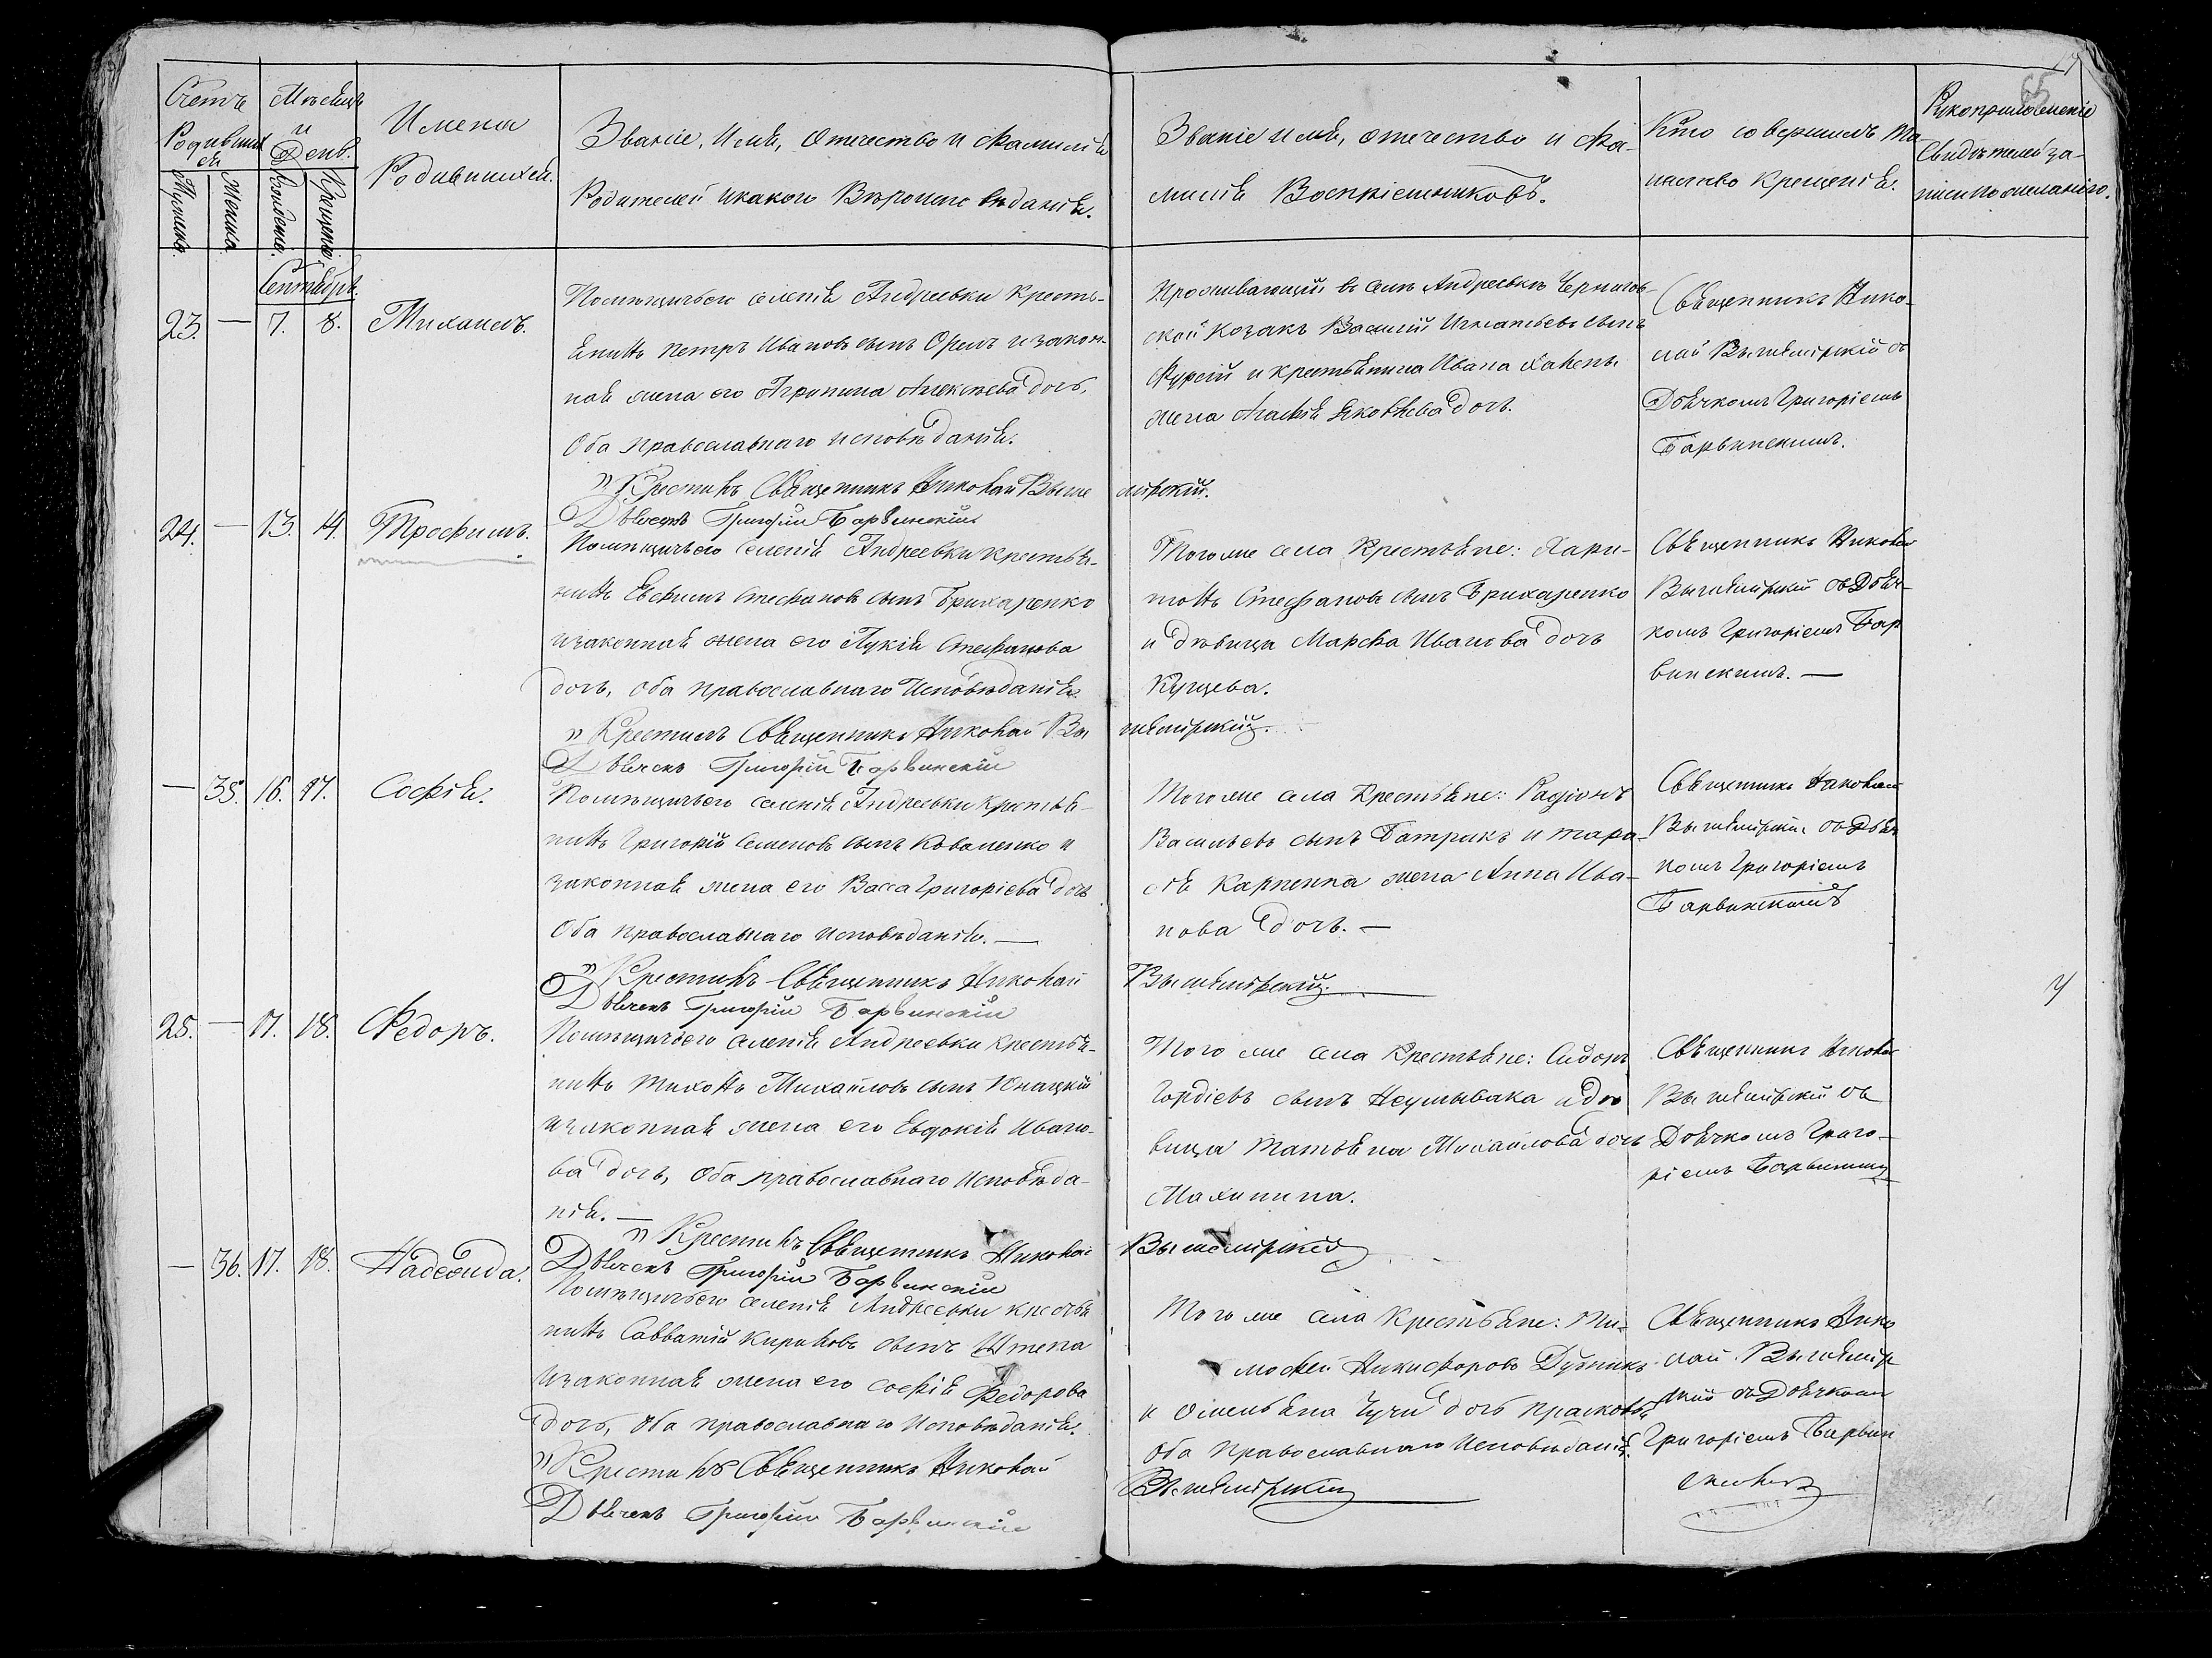 65
Счетъ Родившихся
Мужска.
Женска.
Мѣсяцъ и День.
Рожденія.
Крещенія.
Имена Родившихся.
Званіе, Имя, Отечество и Фамилія
Родителей и какого Вѣроисповѣданія.
Званіе имя, отечество и Фа-
милія Воспріемниковъ.
Кто совершилъ Та-
инство Крещенія.
Рукоприложеніе
Свидѣтелей за-
писи по желанію.
Сентябрь.
23. — 7. 8. Михаилъ.
Помѣщичьего селенія Андреевки Кресть-
янинъ Петръ Ивановъ сынъ Орелъ и закон-
ная жена его Агрипина Алексѣева дочь,
Оба православнаго исповѣданія.
Проживающій въ селѣ Андреевкѣ Чернигов-
скій Козакъ Василій Игнатьевъ сынъ
и крестьянина Ивана
жена Агафія Яковлева дочь.
Священникъ Нико-
лай Вышемірскій съ
Дьячкомъ Григоріемъ
Барвинскимъ.
„Крестилъ Священникъ Николай Выше
мірскій.
Дьячекъ Григорій Барвинскій
24. — 13. 14. Трофимъ.
Помѣщичьего селенія Андреевки крестья-
нинъ Евфимъ Стефановъ сынъ Брихаренко
и законная жена его Лукія Стефанова
дочь, оба православнаго Исповѣданія
Того же села Крестьяне: Хари-
тонъ Стефановъ сынъ Брихаренко
и дѣвица Марфа Иванова дочь
Куцева.
Священникъ Николай
Вышемірскій съ Дьяч-
комъ Григоріемъ Бар
винскимъ. —
„Крестилъ Священникъ Николай Вы
шемірскій.
Дьячекъ Григорій Барвинскій
— 35. 16. 17. Софія.
Помѣщичьего селенія Андреевки крестья-
нинъ Григорій Семеновъ сынъ Коваленко и
законная жена его Васса Григоріева дочь
Оба православнаго исповѣданія. —
Того же села Крестьяне: Радіонъ
Васильевъ сынъ Батракъ и Тара-
сія Карпенка жена Анна Ива-
нова дочь. —
Священникъ Николай
Вышемірскій съ Дьяч
комъ Григоріемъ
Барвинскимъ
„Крестилъ Священникъ Николай
Вышемірскій.
Дьячекъ Григорій Барвинскій
25. — 17. 18. Федоръ.
Помѣщичьего селенія Андреевки крестья-
нинъ Тихонъ Михайловъ сынъ Юнацкій
и законная жена его Евдокія Ивано-
ва дочь, Оба православнаго Исповѣда-
нія. —
Того же села Крестьяне: Сидоръ
Гордіевъ сынъ Неумывака и дѣ
вица Татьяна Михайлова дочь
Махинина.
Священникъ Николай
Вышемірскій съ
Дьячкомъ Григо-
ріемъ Барвинск
„Крестилъ Священникъ Николай
Вышемірскій
Дьячекъ Григорій Барвинскій
— 36. 17. 18. Надежда.
Помѣщичьего селенія Андреевки крестья
нинъ Савватій Кириловъ сынъ Штепа
и законная жена его Софія Федорова
дочь, Оба православнаго Исповѣданія.
Того же села Крестьяне: Ти-
мофей Никифоровъ Дубникъ
и Омельяна Чучи дочь Прасковья
Оба православнаго Исповѣданія.
Священникъ Нико
лай Вышемір
скій съ Дьячкомъ
Григоріемъ Барвин
скимъ
„Крестилъ Священникъ Николай
Вышемірскій
Дьячекъ Григорій Барвинскій